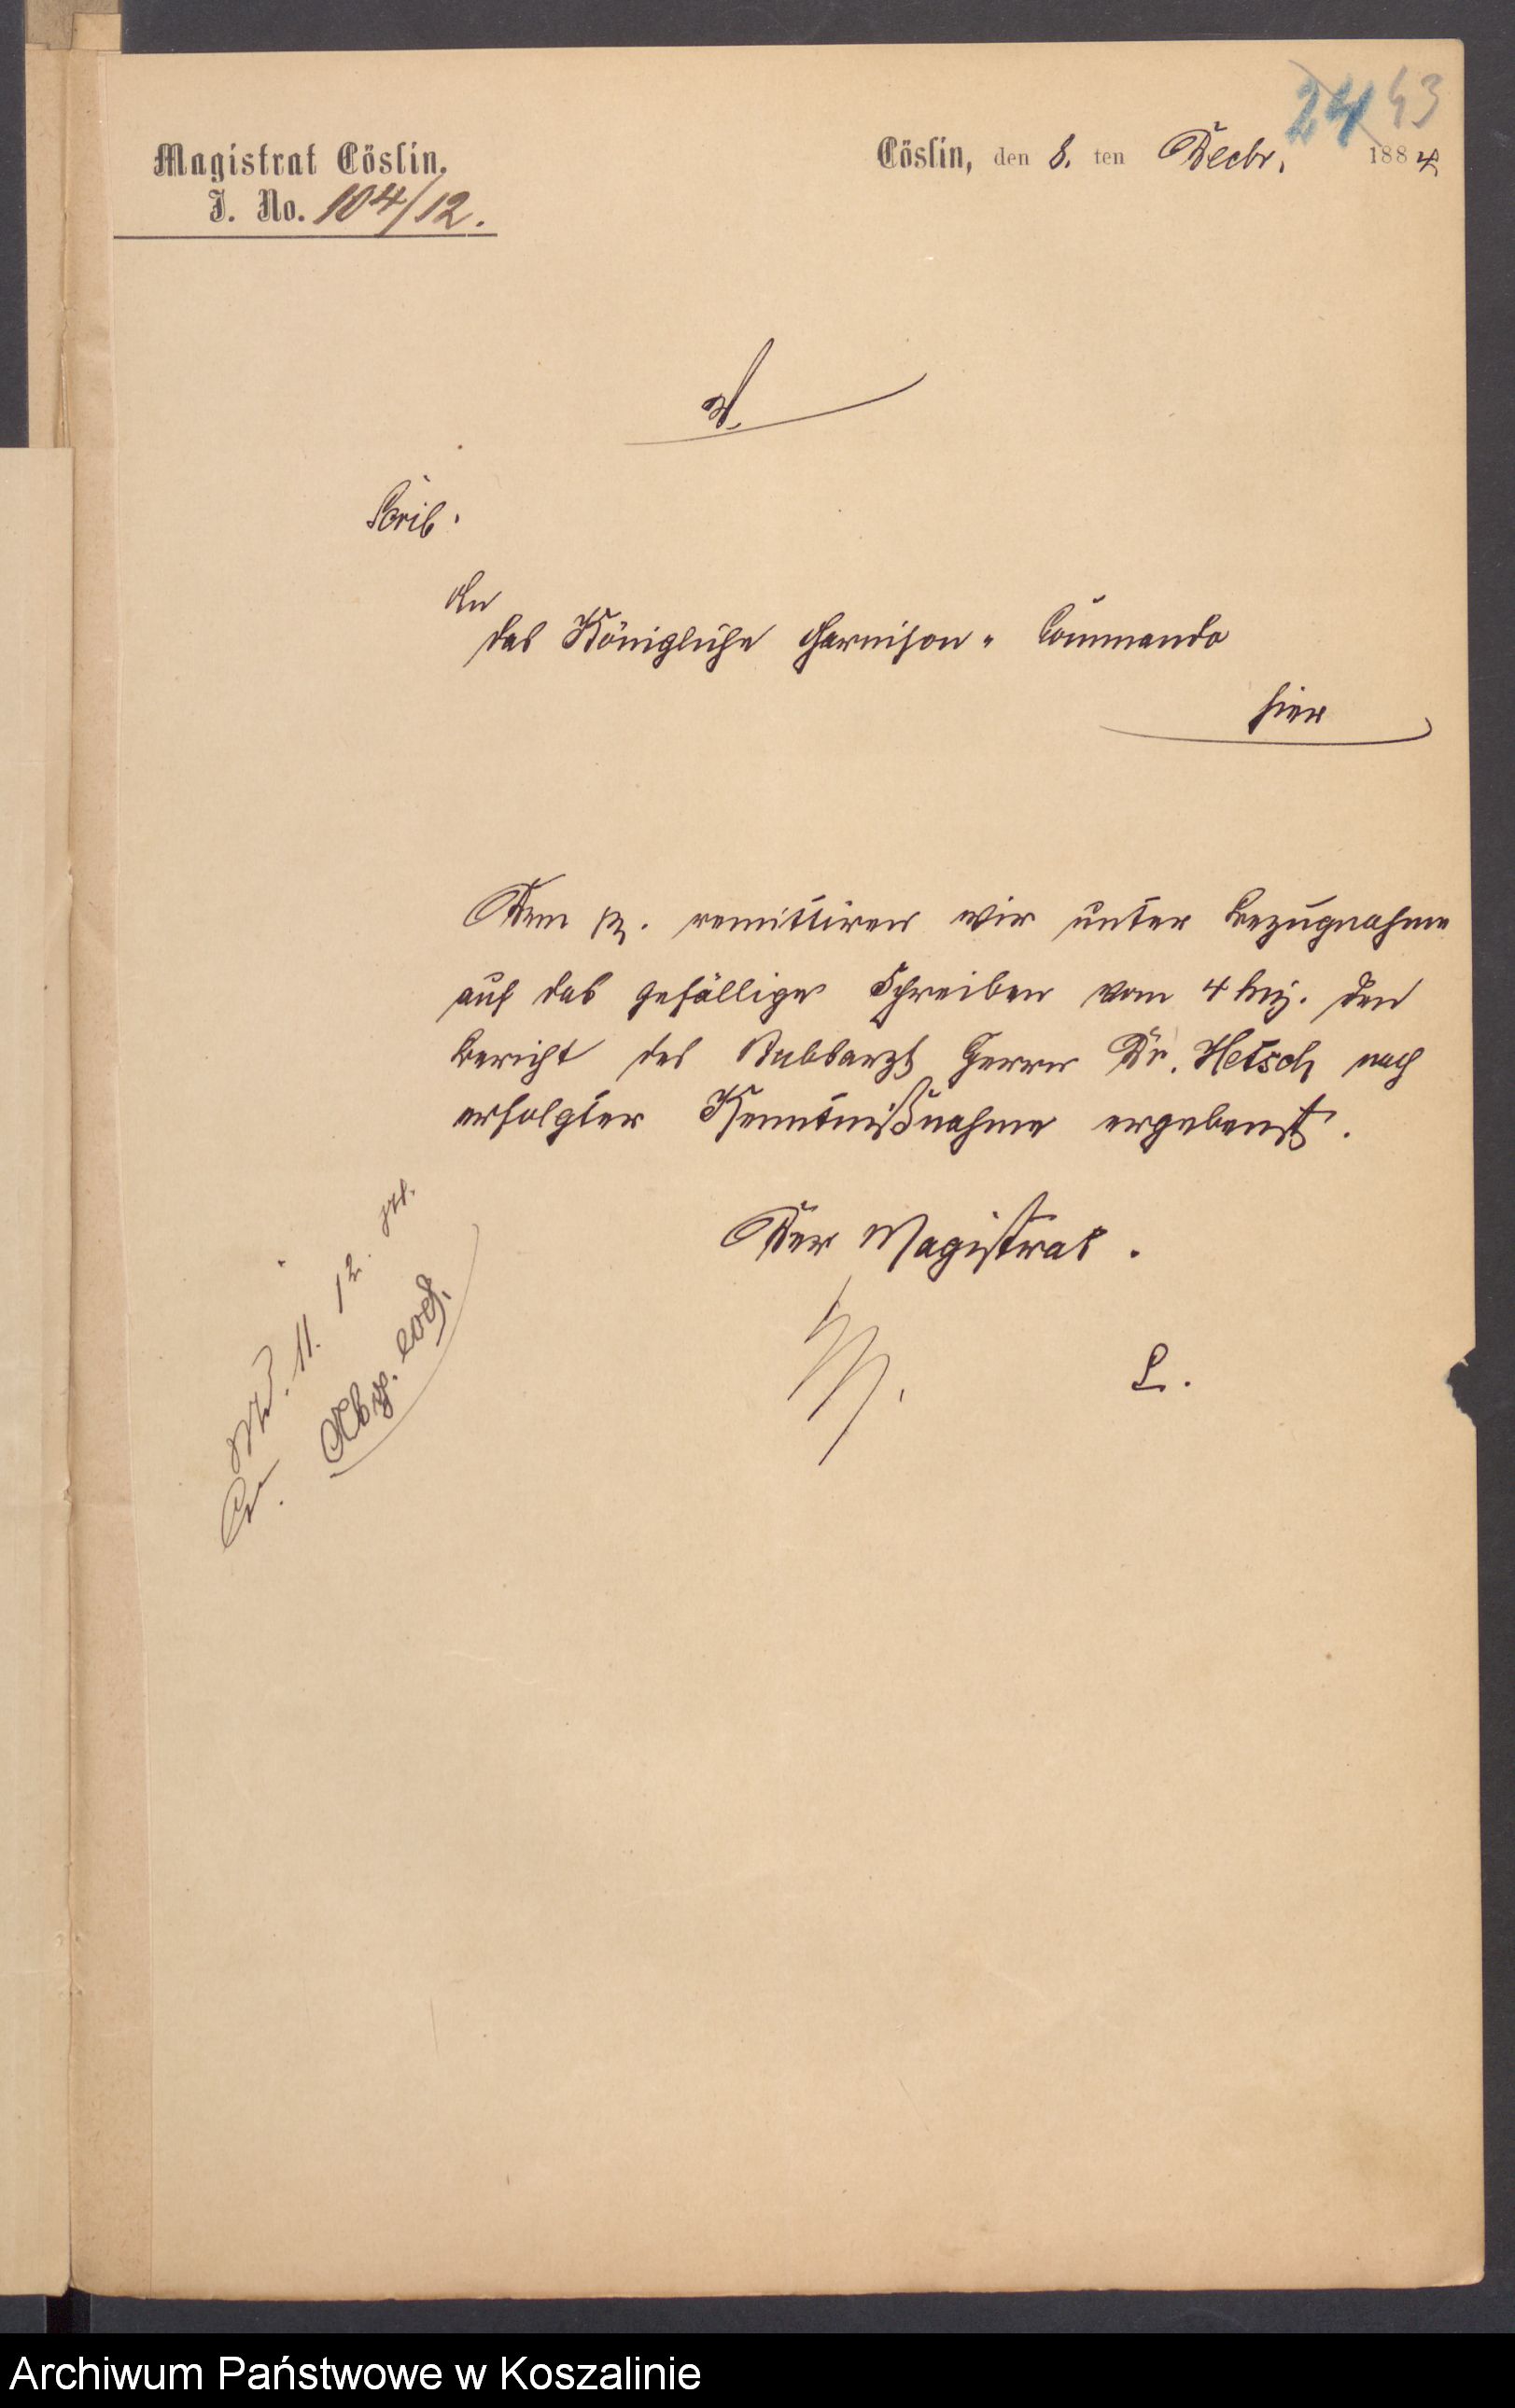 24 43
Magistrat Cöslin.
J. No. 104/12.
Cöslin, den 8. ten Decbr. 1884
Scrib.
An
das Königliche Garnison-Commando
hier
Dem pp. remittiren wir unter Bezugnahme
auf das gefällige Schreiben vom 4 huj. den
Bericht des Stabsarzt Herrn Dr. Hetsch nach
erfolgter Kenntnißnahme ergebenst.
Der Magistrat.
L.
11. 12.
Archiwum Państwowe w Koszalinie